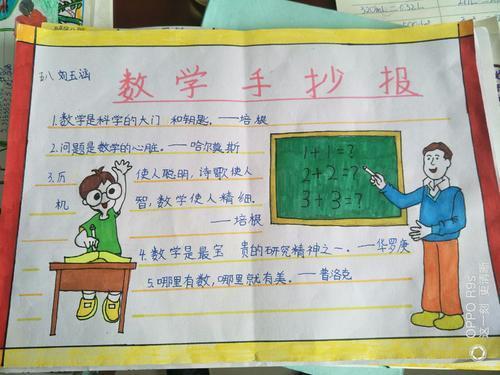 数学手抄报
1.数学是科学的大门 和钥匙。——培根
2.问题是数学的心脏。——哈尔莫斯
3.历 使人聪明,诗歌使人
机 智,数学使人精细.
——培根
4.数学是最宝 贵的研究精神之一.——华罗庚
5.哪里有数,哪里就有美。——普洛克
1+1=?
2+2=?
3+3=?
OPPO R9s
这一刻 更清晰